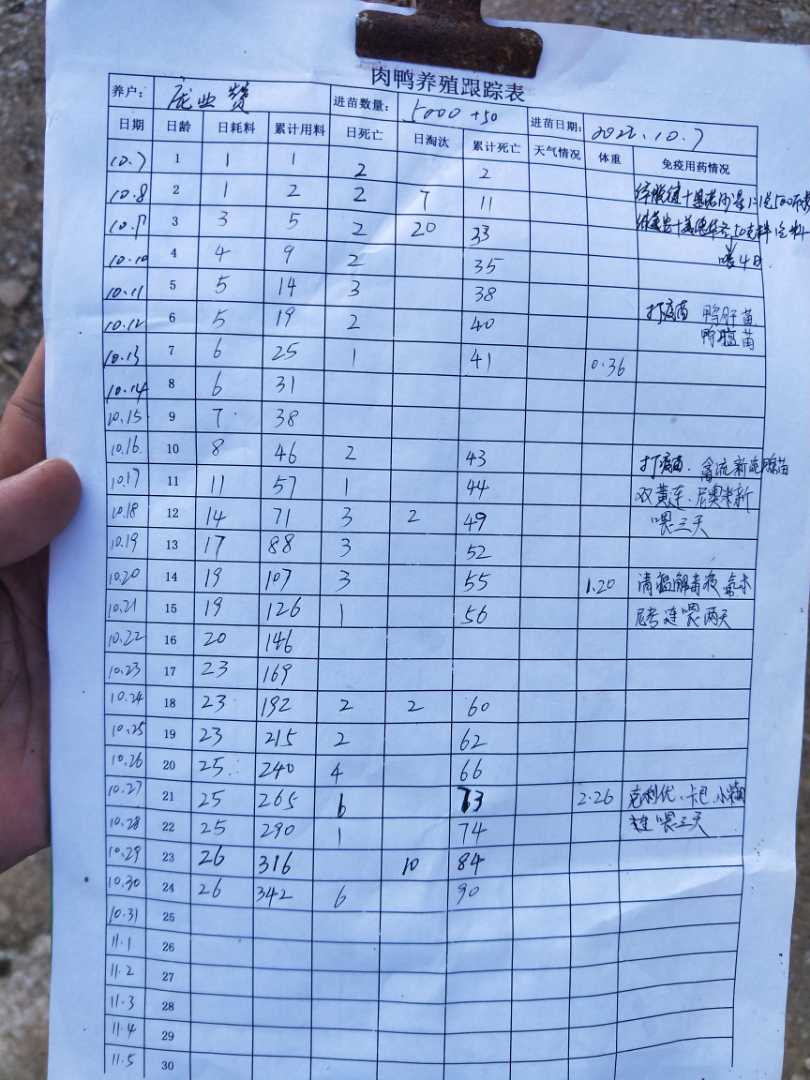 肉鸭养殖跟踪表
养户: 庞业赞 进苗数量: 5000+50 进苗日期: 2022.10.7
日期 日龄 日耗料 累计用料 日死亡 日淘汰 累计死亡 天气情况 体重 免疫用药情况
10.7 1 1 1 2 2
10.8 2 1 2 2 7 11
10.9 3 3 5 2 20 33
10.10 4 4 9 2 35 喂4日
10.11 5 5 14 3 38
10.12 6 5 19 2 40 打疫苗 鸭肝苗
鸭瘟苗
10.13 7 6 25 1 41 0.36
10.14 8 6 31
10.15 9 7 38
10.16 10 8 46 2 43 打疫苗.禽流新流腺苗
10.17 11 11 57 1 44 双黄连、尼奥米新
10.18 12 14 71 3 2 49 喂三天
10.19 13 17 88 3 52
10.20 14 19 107 3 55 1.20 清瘟解毒液
10.21 15 19 126 1 56 连喂两天
10.22 16 20 146
10.23 17 23 169
10.24 18 23 192 2 2 60
10.25 19 23 215 2 62
10.26 20 25 240 4 66
10.27 21 25 265 6 73 2.26 克利优、卡巴
10.28 22 25 290 1 74 连喂三天
10.29 23 26 316 10 84
10.30 24 26 342 6 90
10.31 25
11.1 26
11.2 27
11.3 28
11.4 29
11.5 30